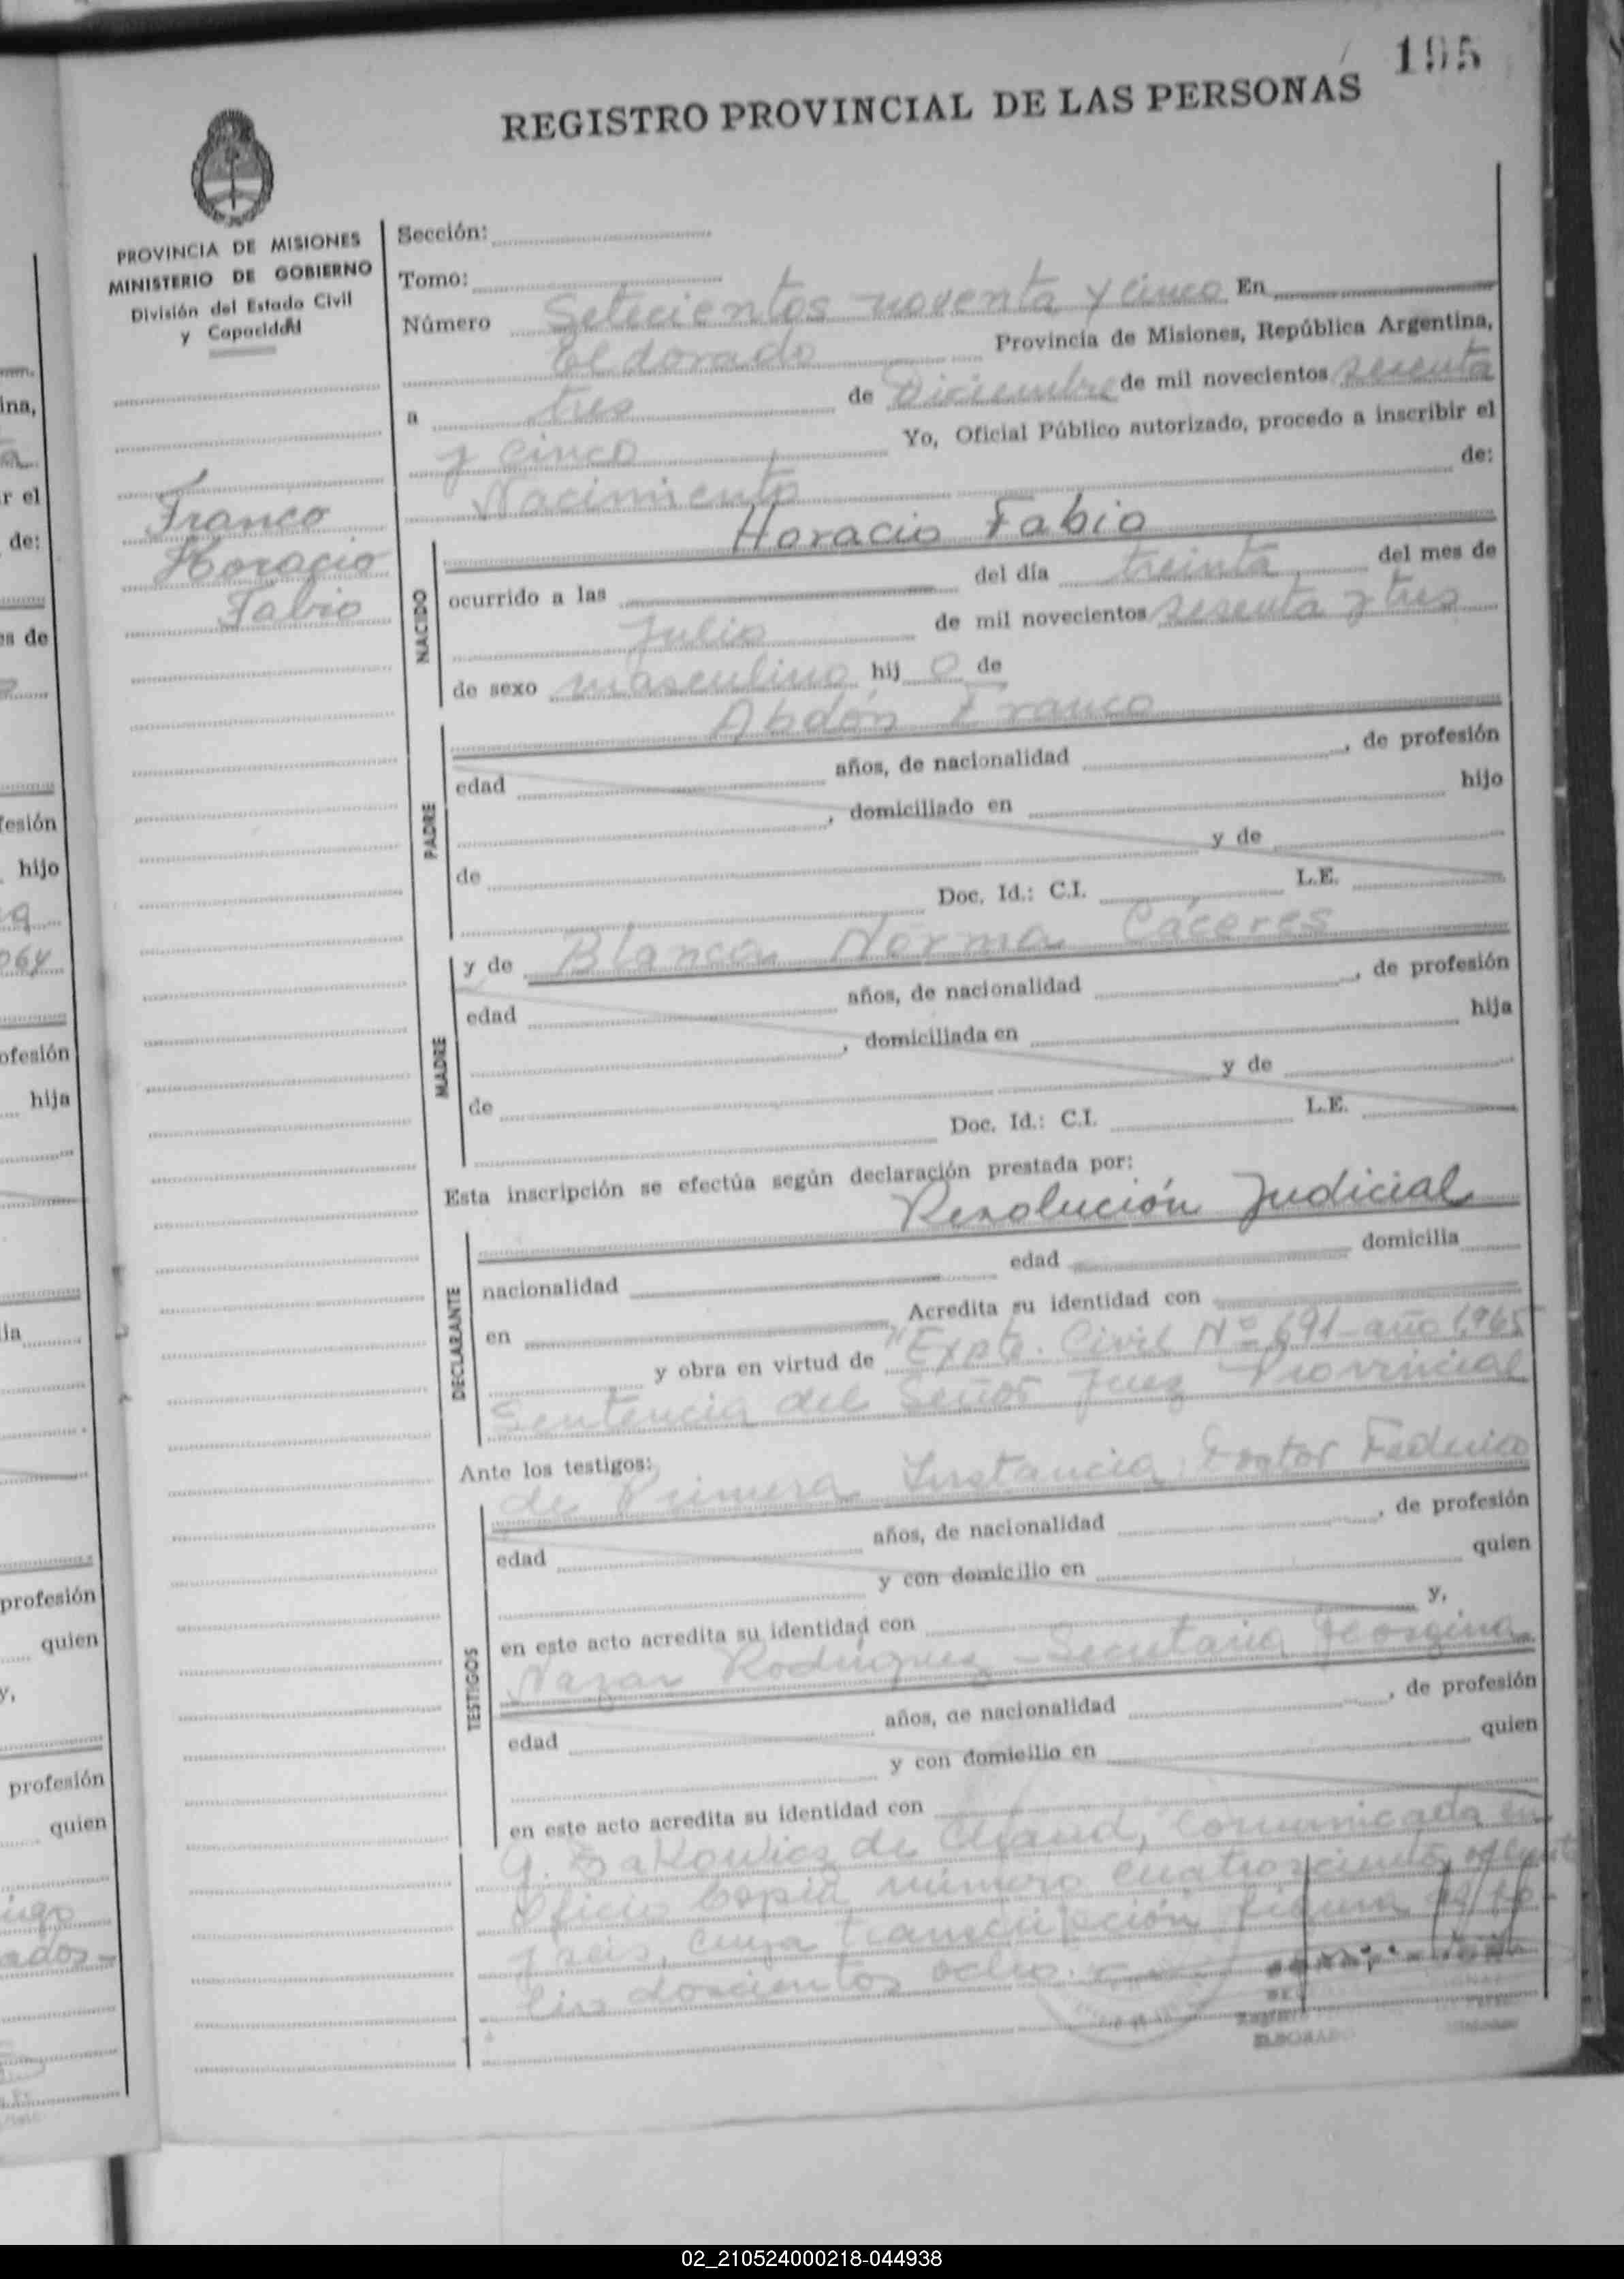 195
REGISTRO PROVINCIAL DE LAS PERSONAS
PROVINCIA DE MISIONES
MINISTERIO DE GOBIERNO
División del Estado Civil
y Capacidad
Franco
Horacio
Fabio
Sección:
Tomo:
Número Setecientos noventa y cinco En
Eldorado Provincia de Misiones, República Argentina,
a tres de Diciembre de mil novecientos sesenta
y cinco Yo, Oficial Público autorizado, procedo a inscribir el
Nacimiento de:
NACIDO
Horacio Fabio
ocurrido a las del día treinta del mes de
Julio de mil novecientos sesenta y tres
de sexo masculino hij o de
PADRE
Abdón Franco
edad años, de nacionalidad , de profesión
, domiciliado en hijo
de y de
Doc. Id.: C.I. L.E.
MADRE
y de Blanca Norma Cáceres
edad años, de nacionalidad , de profesión
, domiciliada en hija
de y de
Doc. Id.: C.I. L.E.
Esta inscripción se efectúa según declaración prestada por:
DECLARANTE
Resolución Judicial
nacionalidad edad domicilia
en Acredita su identidad con
y obra en virtud de "Expte. Civil Nº 691-año 1965
Sentencia del Señor Juez Provincial
Ante los testigos:
de Primera Instancia, Doctor Federico
TESTIGOS
edad años, de nacionalidad , de profesión
y con domicilio en quien
en este acto acredita su identidad con y,
Nazar Rodriguez - Secretaria Georgina
edad años, de nacionalidad , de profesión
y con domicilio en quien
en este acto acredita su identidad con
G. de comunicada en
Oficio copia número
y seis, cuya transcripción figura en fo-
lio doscientos ocho.
ELDORADO
02_210524000218-044938